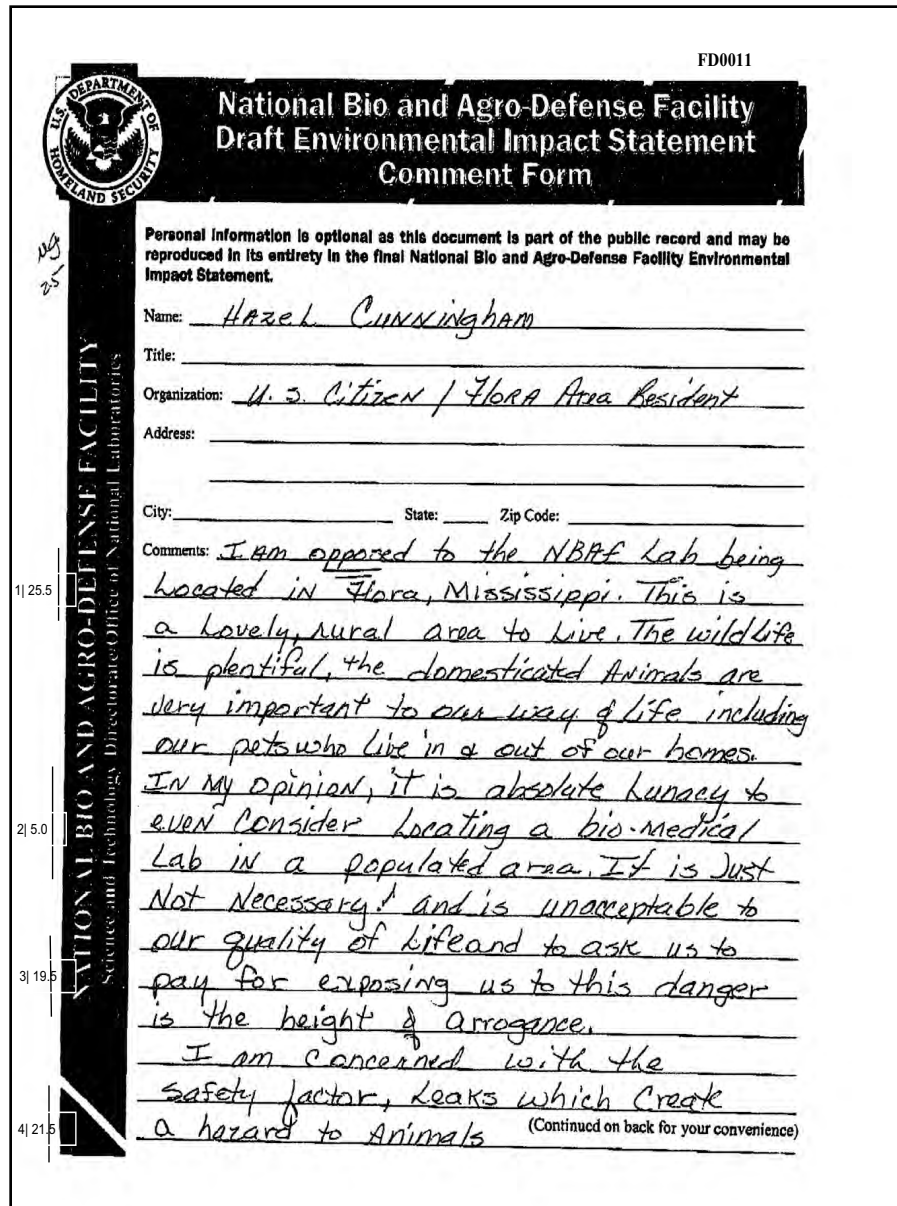 FD0011
U.S. DEPARTMENT OF HOMELAND SECURITY
National Bio and Agro-Defense Facility
Draft Environmental Impact Statement
Comment Form
Personal information is optional as this document is part of the public record and may be
reproduced in its entirety in the final National Bio and Agro-Defense Facility Environmental
Impact Statement.
25
Name: Hazel Cunningham
Title:
Organization: U.S. Citizen / Flora Area Resident
Address:
City: State: Zip Code:
Comments: I am opposed to the NBAF Lab being
Located in Flora, Mississippi. This is
a Lovely, rural area to Live. The wildlife
is plentiful, the domesticated Animals are
very important to our way of Life including
our pets who live in & out of our homes.
In my opinion, it is absolute Lunacy to
even Consider Locating a bio-medical
Lab in a populated area. It is Just
Not Necessary! and is unacceptable to
our quality of Life and to ask us to
pay for exposing us to this danger
is the height of arrogance.
I am concerned with the
safety factor, Leaks which Create
a hazard to Animals (Continued on back for your convenience)
1| 25.5
2| 5.0
3| 19.5
4| 21.5
NATIONAL BIO AND AGRO-DEFENSE FACILITY
Science and Technology Directorate/Office of National Laboratories